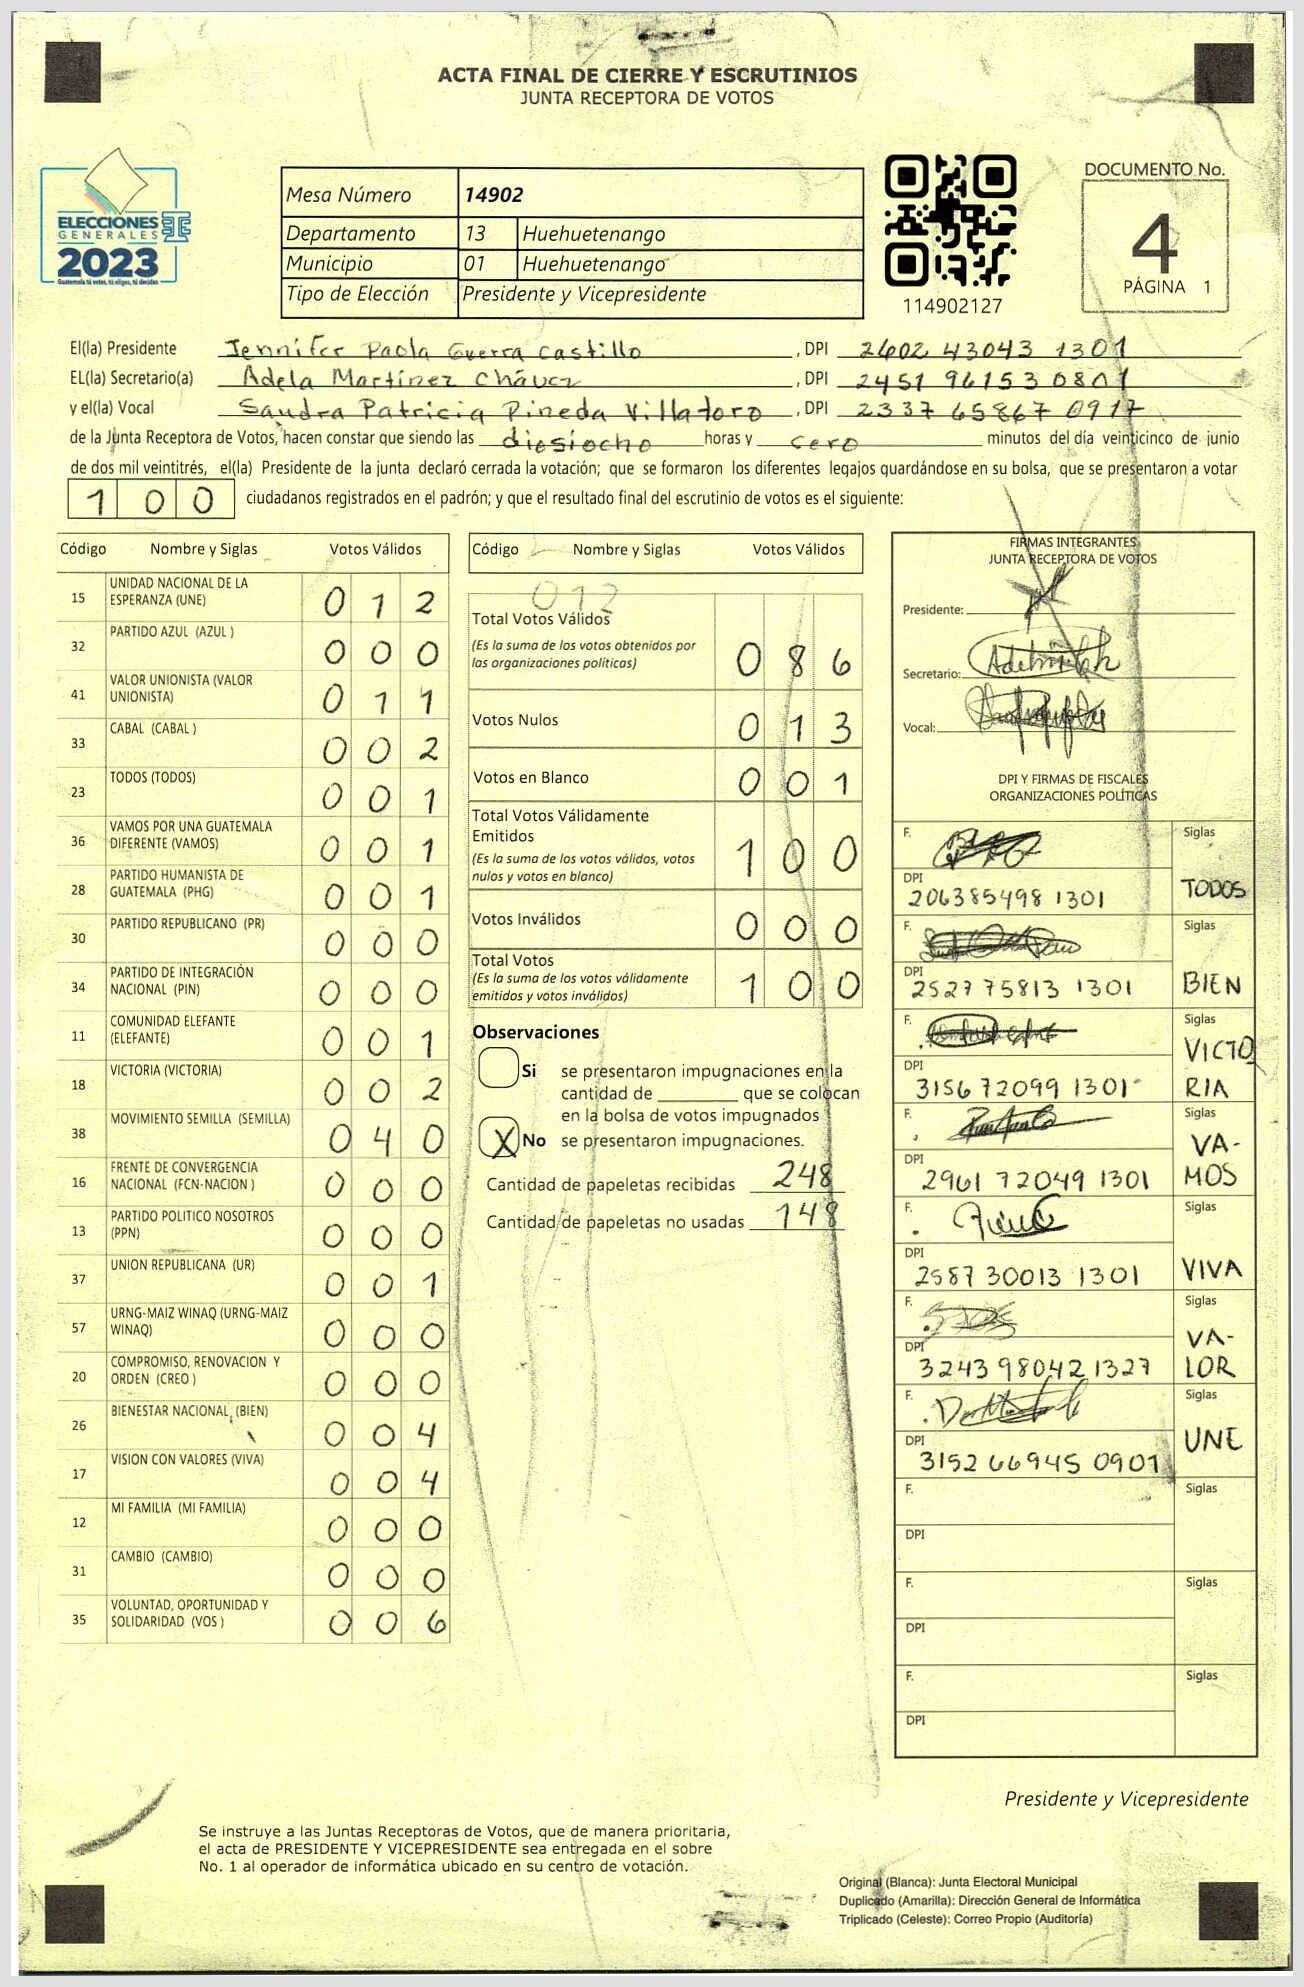 ACTA FINAL DE CIERRE Y ESCRUTINIOS
JUNTA RECEPTORA DE VOTOS
ELECCIONES
GENERALES
2023
Guatemala tú votas, tú eliges, tú decides
Mesa Número 14902
Departamento 13 Huehuetenango
Municipio 01 Huehuetenango
Tipo de Elección Presidente y Vicepresidente
114902127
DOCUMENTO No.
4
PÁGINA 1
El(la) Presidente Jennifer Paola Guerra Castillo , DPI 2602 43043 1301
EL(la) Secretario(a) Adela Martínez Chávez , DPI 2451 96153 0801
y el(la) Vocal Sandra Patricia Pineda Villatoro , DPI 2337 65867 0917
de la Junta Receptora de Votos, hacen constar que siendo las diesiocho horas y cero minutos del día veinticinco de junio
de dos mil veintitrés, el(la) Presidente de la junta declaró cerrada la votación; que se formaron los diferentes legajos guardándose en su bolsa, que se presentaron a votar
100 ciudadanos registrados en el padrón; y que el resultado final del escrutinio de votos es el siguiente:
Código Nombre y Siglas Votos Válidos
15 UNIDAD NACIONAL DE LA
ESPERANZA (UNE) 0 1 2
32 PARTIDO AZUL (AZUL ) 0 0 0
41 VALOR UNIONISTA (VALOR
UNIONISTA) 0 1 1
33 CABAL (CABAL ) 0 0 2
23 TODOS (TODOS) 0 0 1
36 VAMOS POR UNA GUATEMALA
DIFERENTE (VAMOS) 0 0 1
28 PARTIDO HUMANISTA DE
GUATEMALA (PHG) 0 0 1
30 PARTIDO REPUBLICANO (PR) 0 0 0
34 PARTIDO DE INTEGRACIÓN
NACIONAL (PIN) 0 0 0
11 COMUNIDAD ELEFANTE
(ELEFANTE) 0 0 1
18 VICTORIA (VICTORIA) 0 0 2
38 MOVIMIENTO SEMILLA (SEMILLA) 0 4 0
16 FRENTE DE CONVERGENCIA
NACIONAL (FCN-NACION ) 0 0 0
13 PARTIDO POLITICO NOSOTROS
(PPN) 0 0 0
37 UNION REPUBLICANA (UR) 0 0 1
57 URNG-MAIZ WINAQ (URNG-MAIZ
WINAQ) 0 0 0
20 COMPROMISO, RENOVACION Y
ORDEN (CREO ) 0 0 0
26 BIENESTAR NACIONAL (BIEN) 0 0 4
17 VISION CON VALORES (VIVA) 0 0 4
12 MI FAMILIA (MI FAMILIA) 0 0 0
31 CAMBIO (CAMBIO) 0 0 0
35 VOLUNTAD, OPORTUNIDAD Y
SOLIDARIDAD (VOS ) 0 0 6
Código Nombre y Siglas Votos Válidos
012
Total Votos Válidos
(Es la suma de los votos obtenidos por
las organizaciones políticas) 0 8 6
Votos Nulos 0 1 3
Votos en Blanco 0 0 1
Total Votos Válidamente
Emitidos
(Es la suma de los votos válidos, votos
nulos y votos en blanco) 1 0 0
Votos Inválidos 0 0 0
Total Votos
(Es la suma de los votos válidamente
emitidos y votos inválidos) 1 0 0
Observaciones
Si se presentaron impugnaciones en la
cantidad de ________ que se colocan
en la bolsa de votos impugnados
X No se presentaron impugnaciones.
Cantidad de papeletas recibidas 248
Cantidad de papeletas no usadas 148
FIRMAS INTEGRANTES
JUNTA RECEPTORA DE VOTOS
Presidente:
Secretario:
Vocal:
DPI Y FIRMAS DE FISCALES
ORGANIZACIONES POLÍTICAS
F. Siglas
DPI TODOS
206385498 1301
F. Siglas
DPI BIEN
2527 75813 1301
F. Siglas
VICTO
DPI RIA
3156 72099 1301
F. Siglas
VA-
DPI MOS
2961 72049 1301
F. Siglas
DPI VIVA
2587 30013 1301
F. Siglas
VA-
DPI LOR
3243 98042 1327
F. Siglas
DPI UNE
3152 66945 0901
F. Siglas
DPI
F. Siglas
DPI
F. Siglas
DPI
Presidente y Vicepresidente
Se instruye a las Juntas Receptoras de Votos, que de manera prioritaria,
el acta de PRESIDENTE Y VICEPRESIDENTE sea entregada en el sobre
No. 1 al operador de informática ubicado en su centro de votación.
Original (Blanca): Junta Electoral Municipal
Duplicado (Amarilla): Dirección General de Informática
Triplicado (Celeste): Correo Propio (Auditoría)